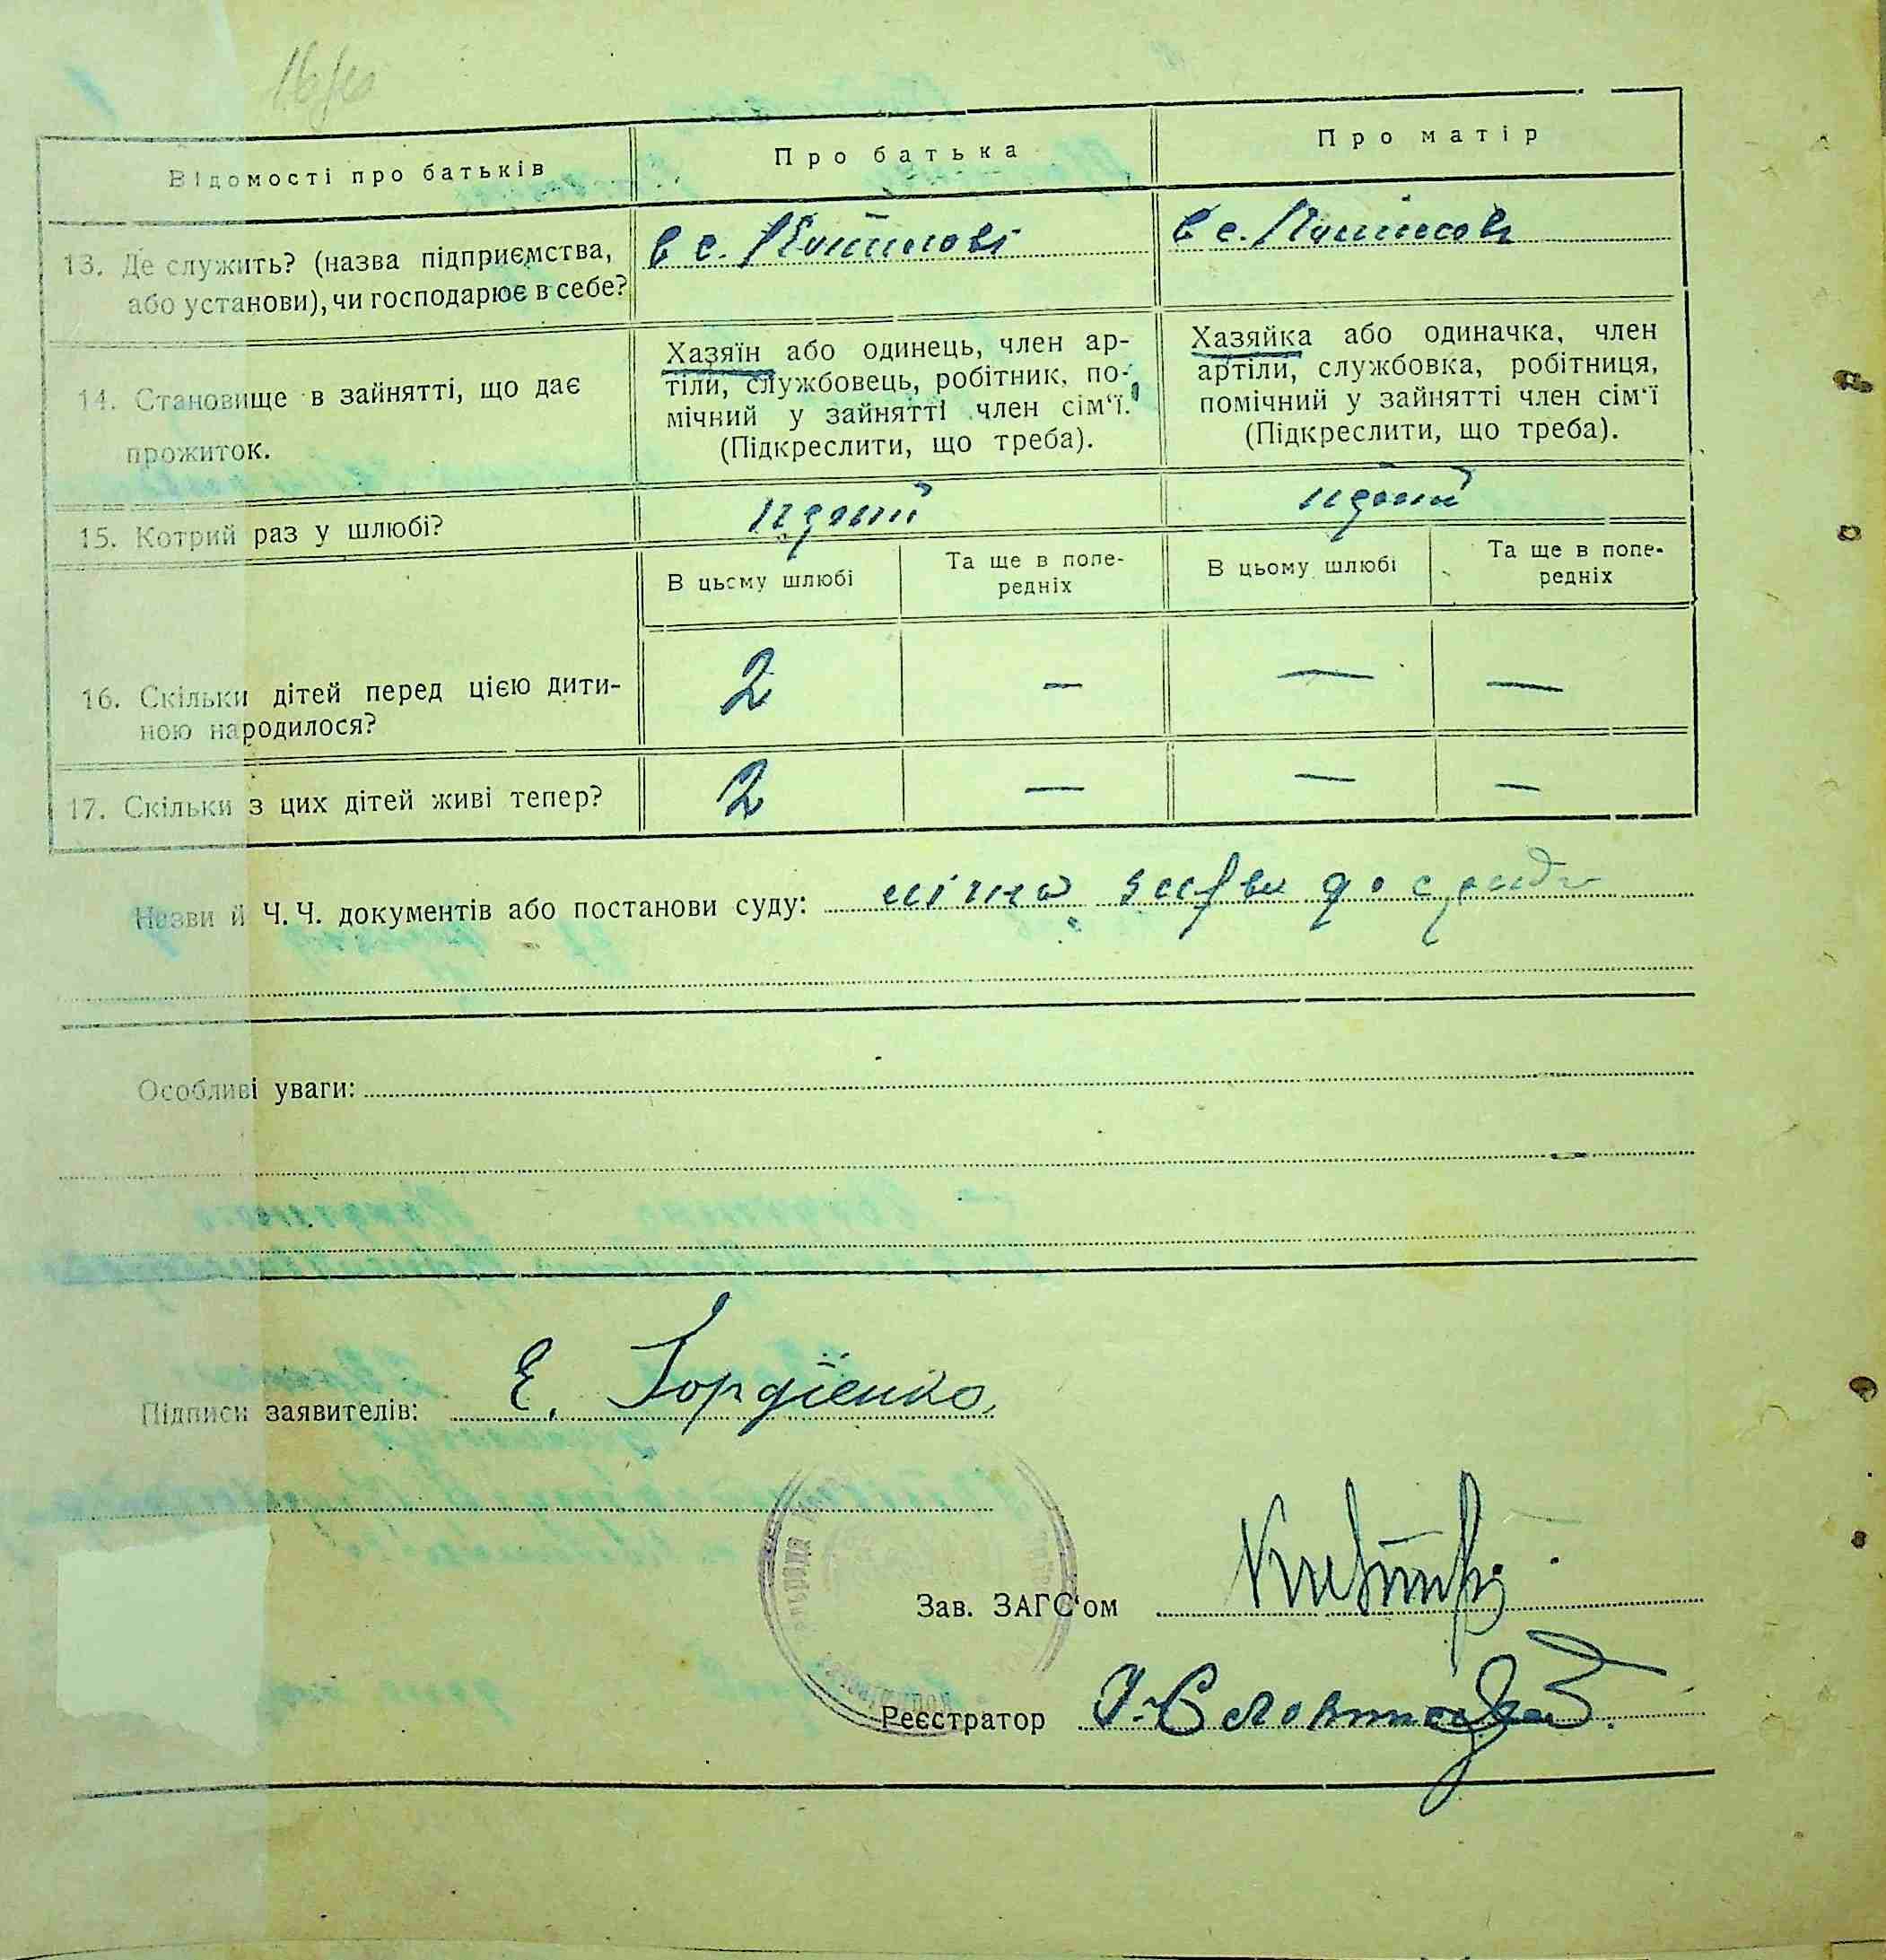 Відомості про батьків
Про батька
Про матір
13. Де служить? (назва підприємства,
або установи), чи господарює в себе?
в с.
в с.
14. Становище в зайнятті, що дає
прожиток.
Хазяїн або одинець, член ар-
тіли, службовець, робітник, по-
мічний у зайнятті член сім‘ї.
(Підкреслити, що треба).
Хазяйка або одиначка, член
артіли, службовка, робітниця,
помічний у зайнятті член сім‘ї
(Підкреслити, що треба).
15. Котрий раз у шлюбі?
В цьому шлюбі
Та ще в попе-
редніх
В цьому шлюбі
Та ще в попе-
редніх
16. Скільки дітей перед цією дити-
ною народилося?
2 — — —
17. Скільки з цих дітей живі тепер?
2 — — —
Назви й Ч. Ч. документів або постанови суду:
Особливі уваги:
Підписи заявителів: Є. Гордієнко
Зав. ЗАГС‘ом
Реєстратор